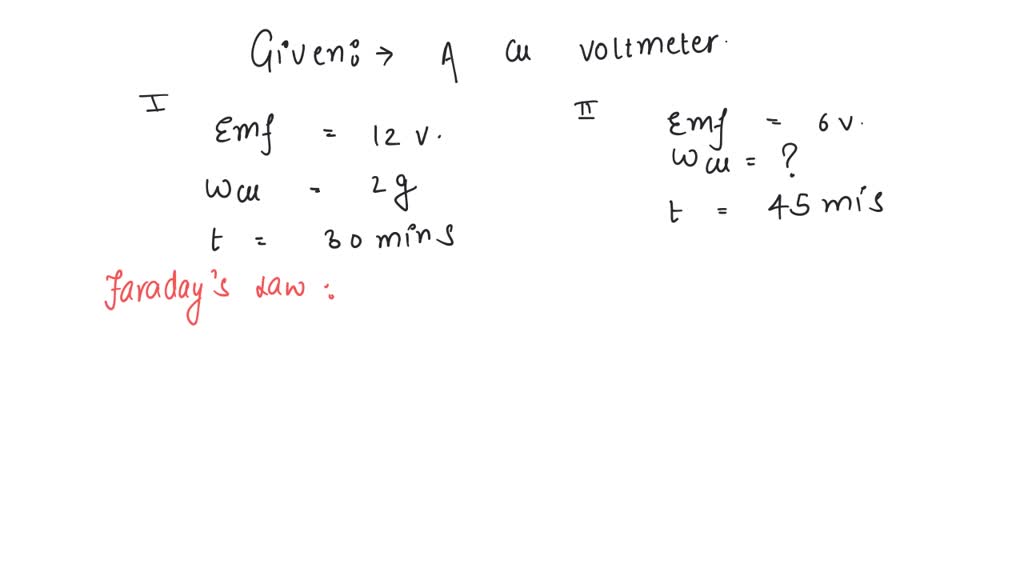 Given: → A cu voltmeter.
I
Emf = 12 v.
Wcu = 2g
t = 30 mins
II
Emf = 6 v.
Wcu = ?
t = 45 mis
Faraday's Law :